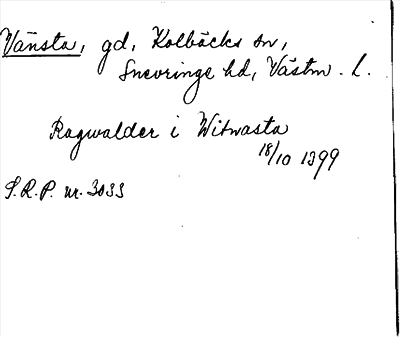 Vänsta, gd, Kolbäcks sn,
Snevringe hd, Västm. L.
Ragwalder i Witwasta
18/10 1399
S.R.P. nr. 3033